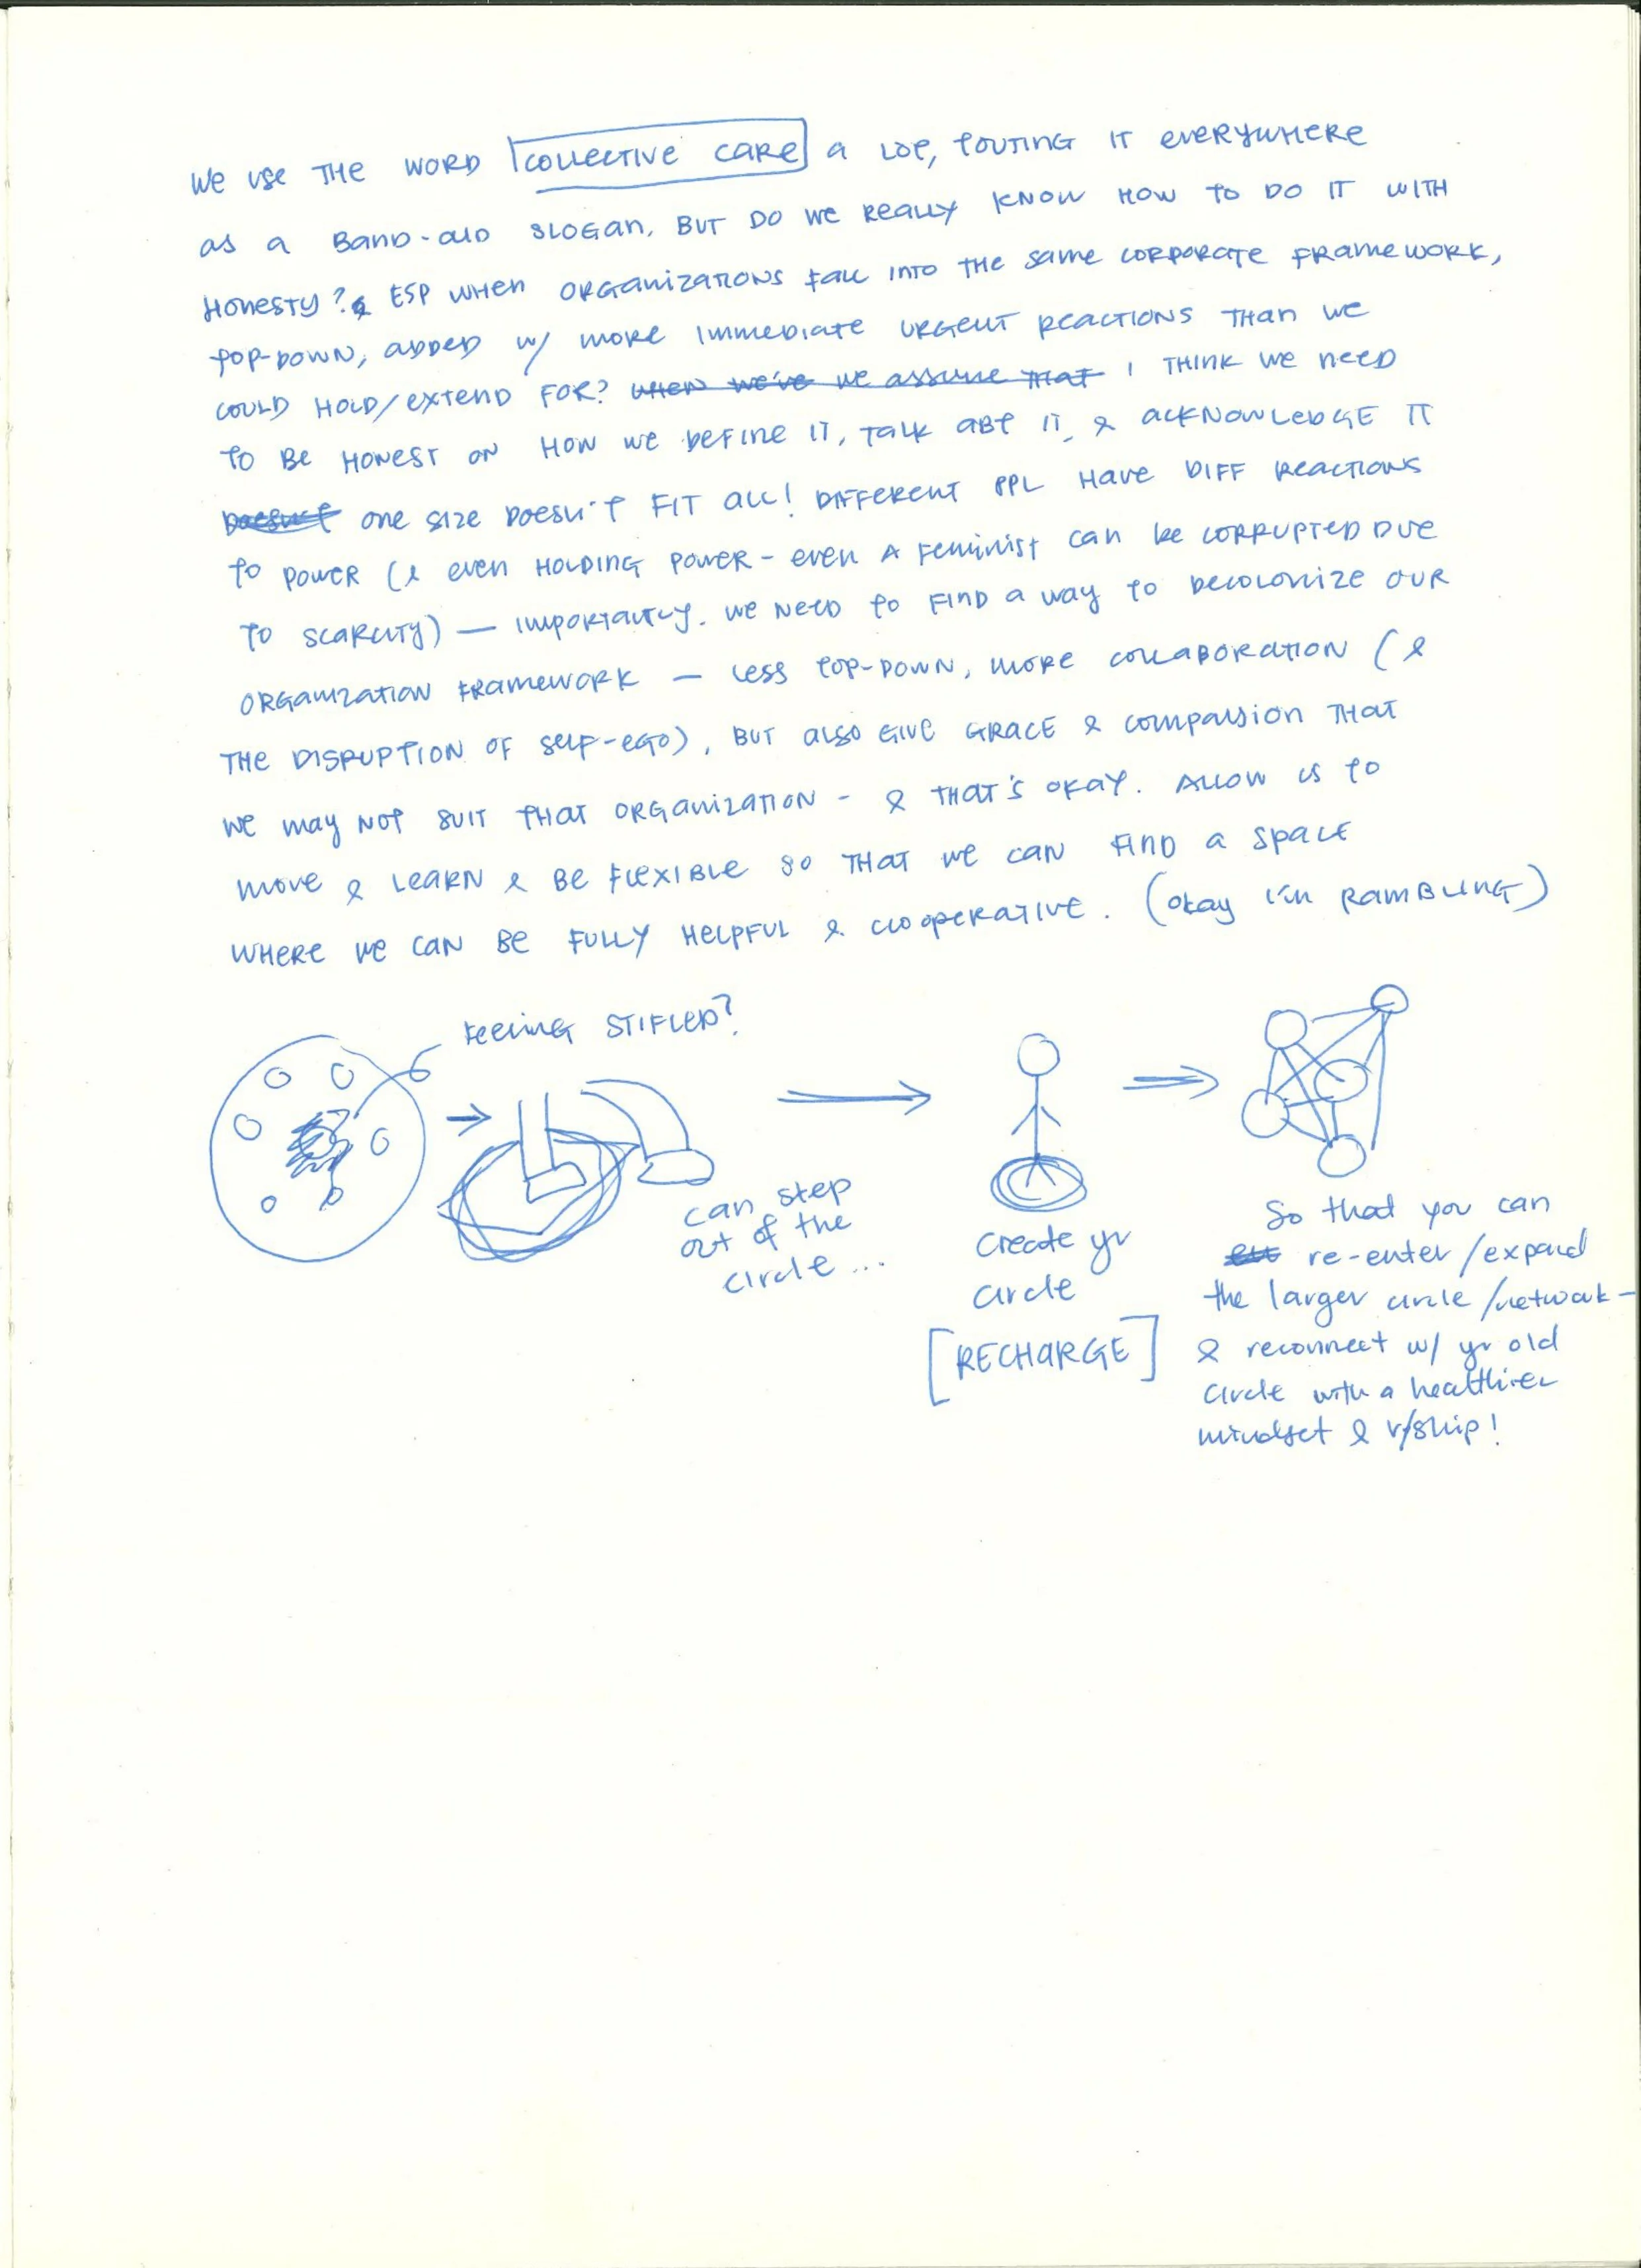 WE USE THE WORD COLLECTIVE CARE A LOT, TOUTING IT EVERYWHERE
AS A BAND-AID SLOGAN, BUT DO WE REALLY KNOW HOW TO DO IT WITH
HONESTY? & ESP WHEN ORGANIZATIONS FALL INTO THE SAME CORPORATE FRAMEWORK,
TOP-DOWN, ADDED W/ MORE IMMEDIATE URGENT REACTIONS THAN WE
COULD HOLD/EXTEND FOR? WHEN WE'VE WE ASSUME THAT I THINK WE NEED
TO BE HONEST ON HOW WE DEFINE IT, TALK ABT IT, & ACKNOWLEDGE IT
DOESN'T ONE SIZE DOESN'T FIT ALL! DIFFERENT PPL HAVE DIFF REACTIONS
TO POWER (& EVEN HOLDING POWER - EVEN A FEMINIST CAN BE CORRUPTED DUE
TO SCARCITY) — IMPORTANTLY. WE NEED TO FIND A WAY TO DECOLONIZE OUR
ORGANIZATION FRAMEWORK — LESS TOP-DOWN, MORE COLLABORATION (&
THE DISRUPTION OF SELF-EGO), BUT ALSO GIVE GRACE & COMPASSION THAT
WE MAY NOT SUIT THAT ORGANIZATION - & THAT'S OKAY. ALLOW US TO
MOVE & LEARN & BE FLEXIBLE SO THAT WE CAN FIND A SPACE
WHERE WE CAN BE FULLY HELPFUL & COOPERATIVE. (OKAY I'M RAMBLING)
FEELING STIFLED?
can step
out of the
circle...
create yr
circle
[RECHARGE]
So that you can
re-enter/expand
the larger circle/network -
& reconnect w/ yr old
circle with a healthier
mindset & r/ship!